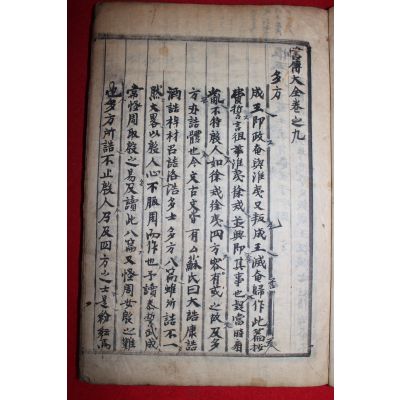 書傳大全卷之九
多方
成王即政奄與淮夷又叛成王滅奄歸作此篇按
費誓言徂茲淮夷徐戎並興即其事也疑當時扇
亂不特殷人如徐戎淮夷四方容有或之故及多
方亦誥體也今文古文皆有○蘇氏曰大誥康誥
酒誥梓材召誥洛誥多士多方八篇雖所誥不一
然大畧以殷人心不服周而作也予讀泰誓武成
常怪周取殷之易及讀此八篇又怪周安殷之難
也多方所誥不止殷人乃及四方之士是紛紜焉